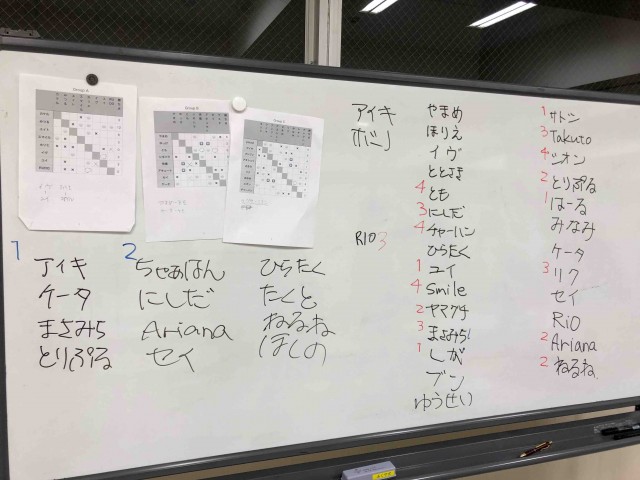 Group A
1
アイキ
ケータ
まさみち
とりぷる
2
ちゃあはん
にしだ
Ariana
セイ
ひらたく
たくと
ねるね
ほしの
アイキ
RIO 3
やまめ
ほりえ
イヴ
4 とも
3 にしだ
4 チャーハン
ひらたく
1 ユイ
4 Smile
2 ヤマグチ
3 まさみち
1 しが
ブン
ゆうせい
1 サトシ
3 Takuto
4 シオン
2 とりぷる
1 はーる
みなみ
ケータ
3 リク
セイ
RiO
2 Ariana
2 ねるね